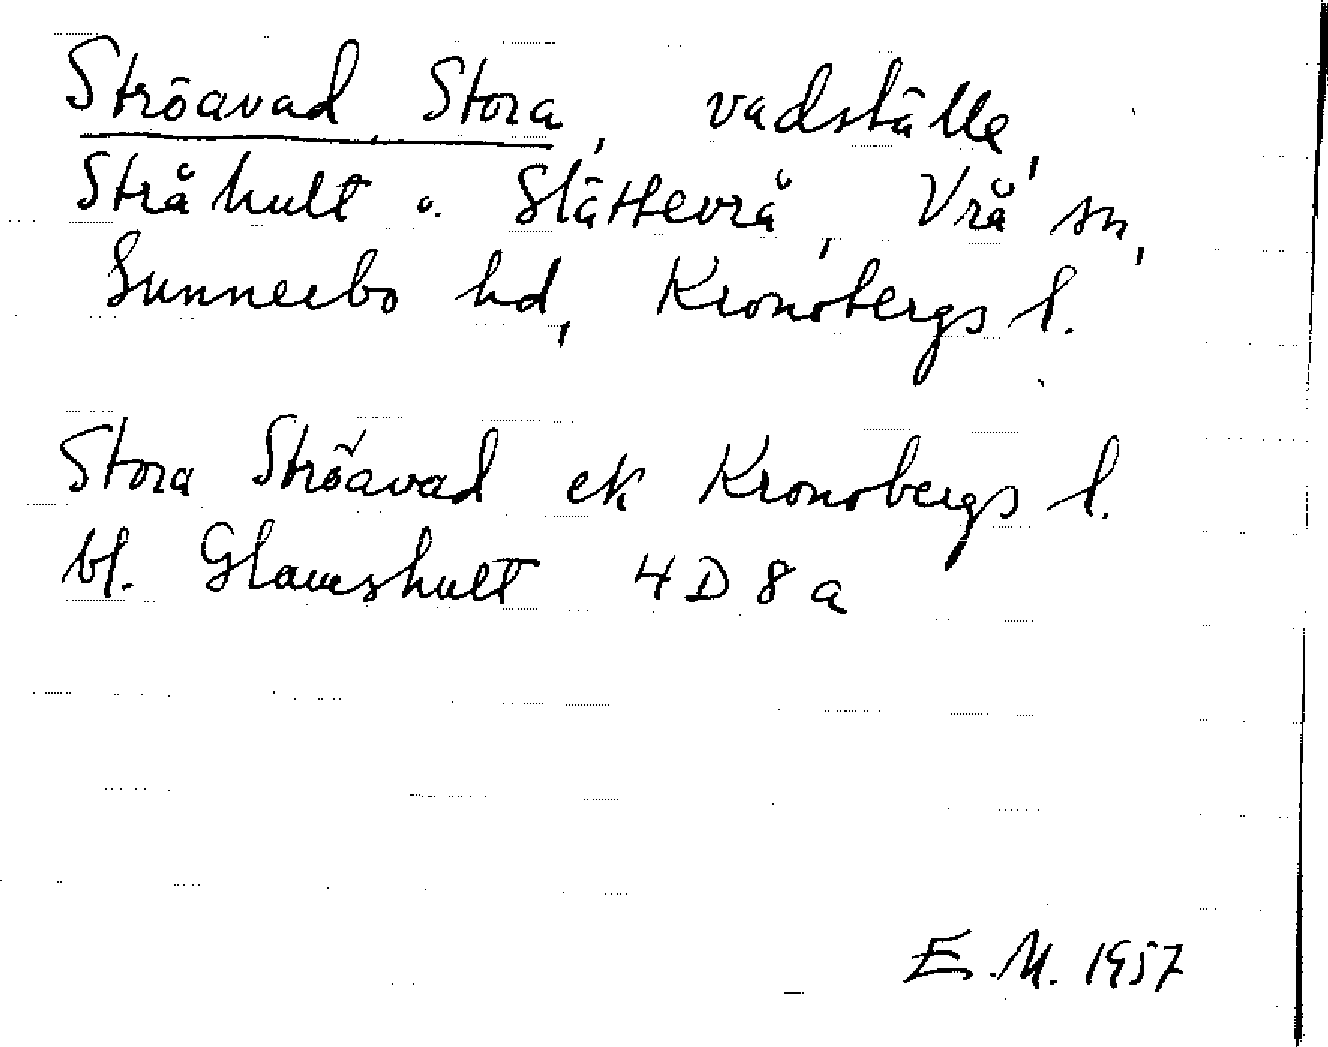 Ströavad, Stora, vadställe,
Stråhult o. Slättevrå, Vrå sn,
Sunnerbo hd, Kronobergs l.
Stora Ströavad ek Kronobergs l.
bl. Glamshult 4D8a
E.M. 1957